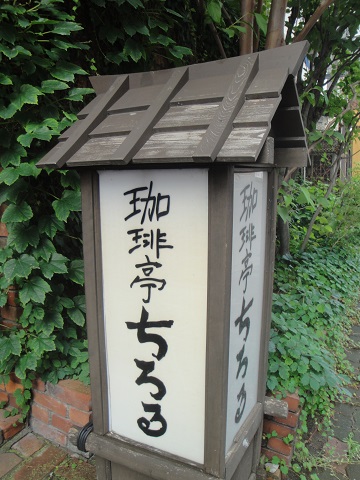 珈琲亭ちろる
珈琲亭ちろる